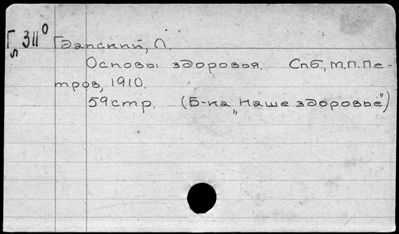 Г 311⁰
5
Гдапский, Л.
Основы здоровья. Спб, М.П.Пе-
тров, 1910.
59стр. (Б-ка „Наше здоровье")